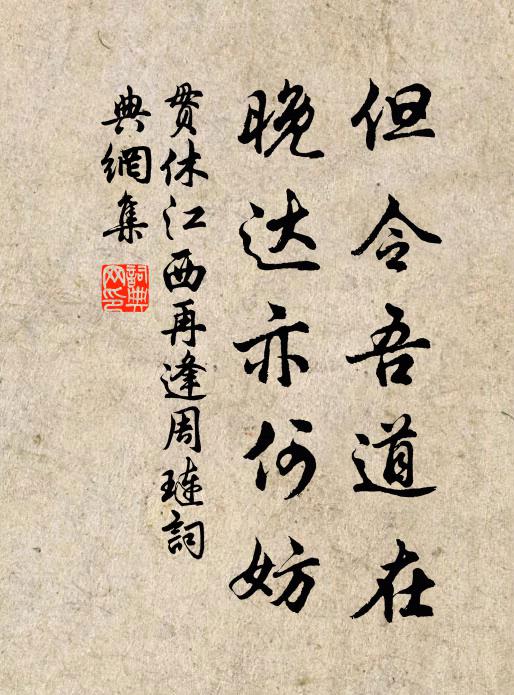 但令吾道在
晚达亦何妨
贯休江西再逢周琏詞
典網集
詞典
网印